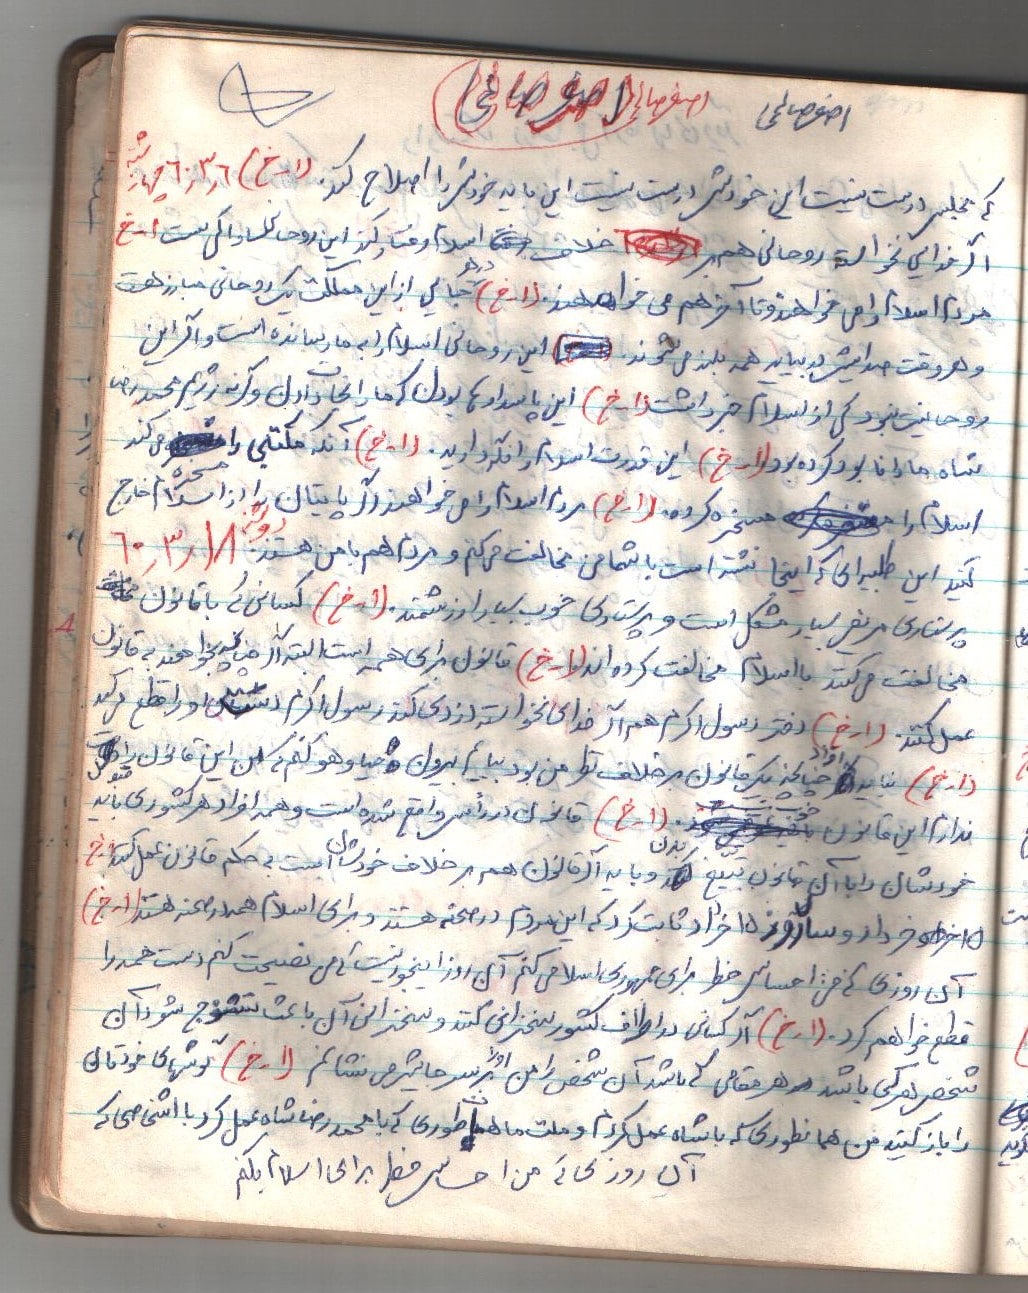 اصغر صالحی اصغر صالحی (اصغر صالحی)
که مجلس درست نیست این خودش درست نیست این باید خودش را اصلاح کند. (ا-خ) ۶۰،۳،۶
اگر خدای نخواسته روحانی هم بر خلاف اسلام رفت کند این روحانی ا-خ
مردم اسلام را می خواهند و تا آخر هم می خواهند. (ا-خ) در هر جایی از این مملکت یک روحانی مبارز هست
و هر وقت صدایش در بیاید همه بلند می شوند. این روحانی اسلام را به ما رسانده است و اگر این
روحانیت نبود کی از اسلام خبر داشت (ا-خ) این پاسدارها بودن که ما را نجات دادن وگرنه رژیم محمد رضا
شاه ما را نابود کرده بود (ا-خ) این قدرت اسلام را نگه دارید. (ا-خ) آنکه مکتبی را مسخره می کند
اسلام را مسخره کرده. (ا-خ) مردم اسلام را می خواهند اگر پایتان را از اسلام خارج
کنید این طلبه ای که اینجا نشسته است با شما می مخالفت می کنم و مردم هم با من هستند. ۶۰،۳،
پرستاری مریض بسیار مشکل است و پرستاری خوب بسیار ارزشمند. (ا-خ) کسانی که با قانون
مخالفت می کنند با اسلام مخالفت کرده اند (ا-خ) قانون برای همه است البته اگر چنانچه بخواهند به قانون
عمل کنند. (ا-خ) دختر رسول اکرم هم اگر خدای نخواسته دزدی کند رسول اکرم دستش او را قطع می کند
(ا-خ) نباید افراد چنانچه یک قانون بر خلاف نظر من بود بیایم بیرون و هیاهو کنم که من این قانون را قبول
ندارم این قانون خوب نیست. (ا-خ) قانون در رأس واقع شده است و همه افراد هر کشوری باید
خودشان را با آن قانون تطبیق بدن و باید اگر قانون هم بر خلاف خودشان است به حکم قانون عمل کنند ا-خ
۱۵ خرداد و سالروز ۱۵ خرداد ثابت کرد که این مردم در صحنه هستند و برای اسلام همه در صحنه هستند (ا-خ)
آن روزی که من احساس خطر برای جمهوری اسلامی کنم آن روز اینجور نیست که من نصیحت کنم دست همه را
قطع خواهم کرد. (ا-خ) اگر کسانی در اطراف کشور سخنرانی کنند و سخنرانی آن باعث تشنج شود آن
شخص هر کی باشد در هر مقامی که باشد آن شخص را من اورا سر جایش می نشانم (ا-خ) گوشهای خودتان
را باز کنید من همانطوری که با شاه عمل کردم و ملت ما همانطوری که با محمد رضا شاه عمل کرد با اشخاصی که
آن روزی که من احساس خطر برای اسلام بکنم